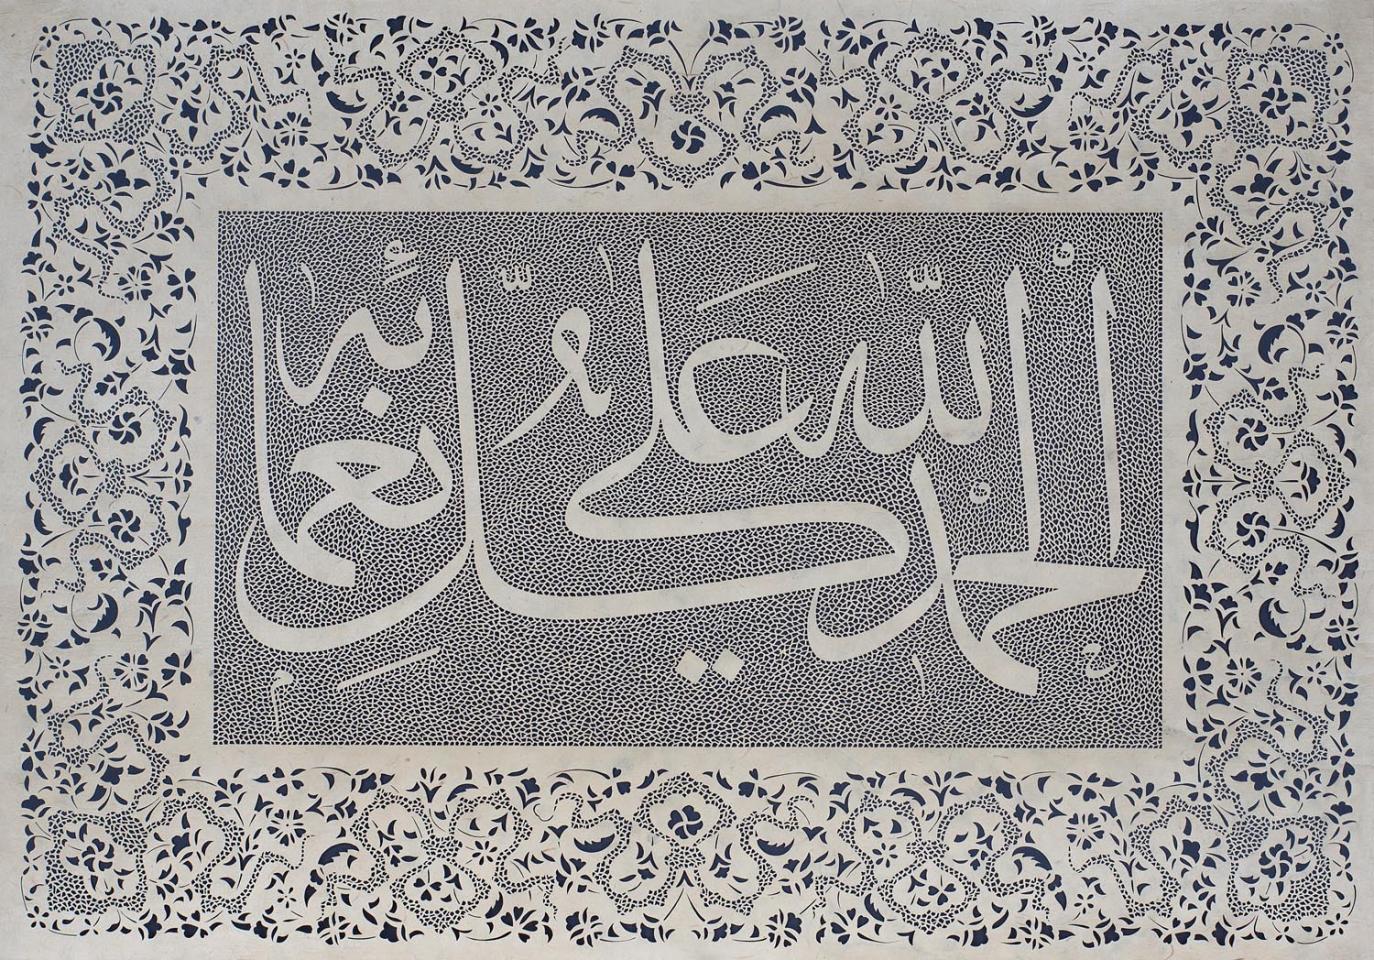 الحمد لله على كل نعمائه